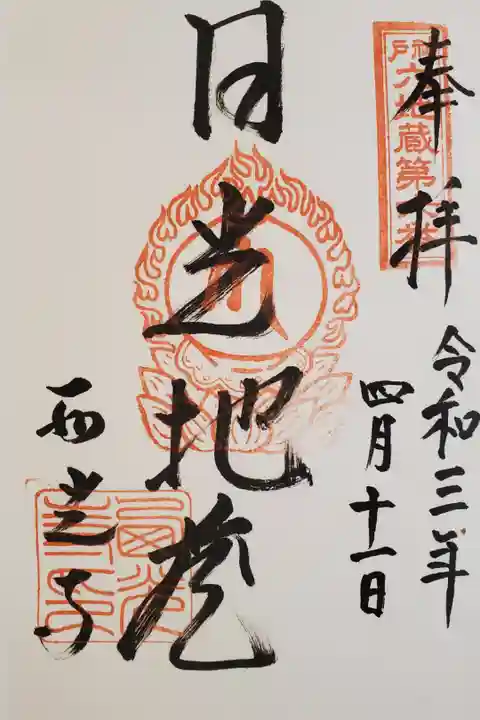 奉拝
六地蔵第
令和三年
四月十一日
日光地蔵
西光寺